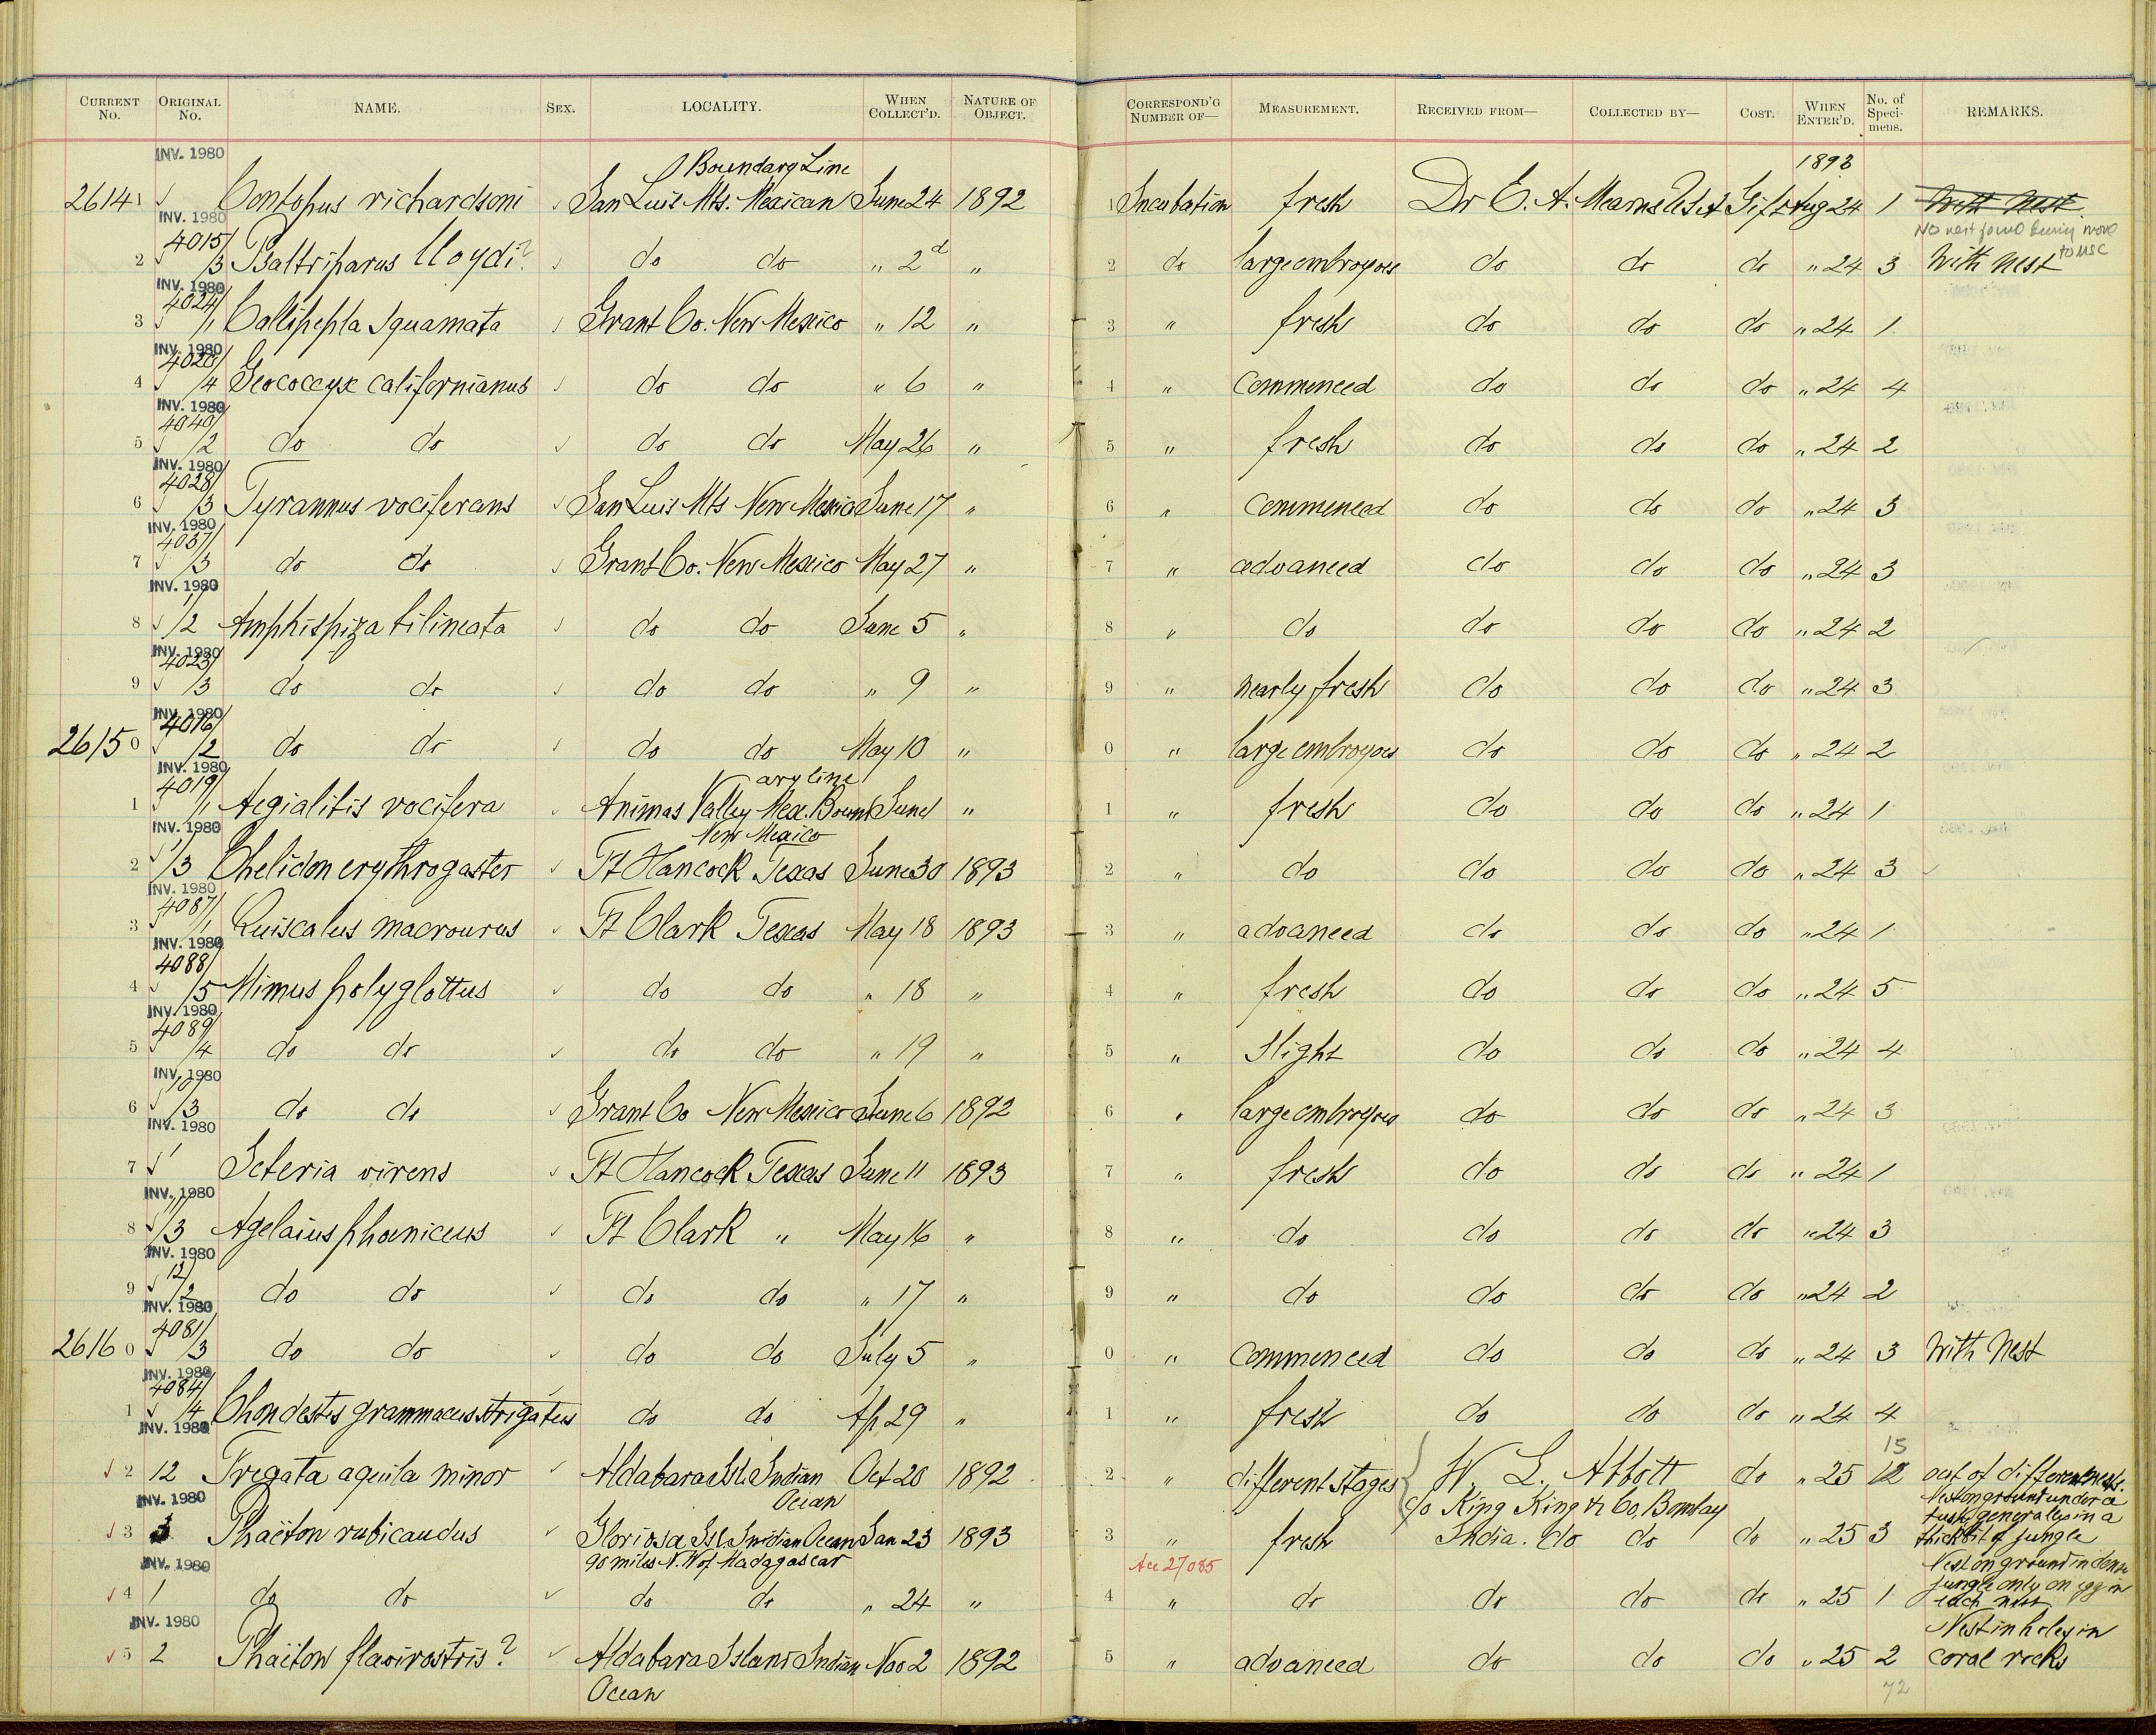 CURRENT No. ORIGINAL No. NAME. SEX. LOCALITY. WHEN COLLECT'D. NATURE OF OBJECT. CORRESPOND'G NUMBER OF— MEASUREMENT. RECEIVED FROM— COLLECTED BY— COST. WHEN ENTER'D. No. of Specimens. REMARKS.
INV. 1980 Boundary Line 1893
26141 Contopus richardsoni San Luis Mts. Mexican June 24 1892 1 Incubation fresh Dr E. A. Mearns Gift Aug 24 1 With Nest
INV. 1980 No nest found during move to MSC
2 4015/3 Psaltriparus lloydi? do do " 2d " 2 do large embryoes do do do " 24 3 With Nest
INV. 1980
3 4024/1 Callipepla squamata Grant Co. New Mexico " 12 " 3 " fresh do do do " 24 1
INV. 1980
4 4020/4 Geococcyx californianus do do " 6 " 4 " commenced do do do " 24 4
INV. 1980
5 4040/2 do do do do May 26 " 5 " fresh do do do " 24 2
INV. 1980
6 4028/3 Tyrannus vociferans San Luis Mts New Mexico June 17 " 6 " commenced do do do " 24 3
INV. 1980
7 4037/3 do do Grant Co. New Mexico May 27 " 7 " advanced do do do " 24 3
INV. 1980
8 /2 Amphispiza bilineata do do June 5 " 8 " do do do do " 24 2
INV. 1980
9 4023/3 do do do do " 9 " 9 " nearly fresh do do do " 24 3
INV. 1980
26150 4016/2 do do do do May 10 " 0 " large embryoes do do do " 24 2
INV. 1980 ary line
1 4019/1 Aegialitis vocifera Animas Valley Mex. Bound June 1 " 1 " fresh do do do " 24 1
INV. 1980 New Mexico
2 /3 Chelidon erythrogaster Ft Hancock Texas June 30 1893 2 " do do do do " 24 3
INV. 1980
3 4087/1 Quiscalus macrourus Ft Clark Texas May 18 1893 3 " advanced do do do " 24 1
INV. 1980
4 4088/5 Mimus polyglottus do do " 18 " 4 " fresh do do do " 24 5
INV. 1980
5 4089/4 do do do do " 19 " 5 " slight do do do " 24 4
INV. 1980
6 10/3 do do Grant Co New Mexico June 6 1892 6 " large embryoes do do do " 24 3
INV. 1980
7 Icteria virens Ft Hancock Texas June 11 1893 7 " fresh do do do " 24 1
INV. 1980
8 11/3 Agelaius phoeniceus Ft Clark " May 16 " 8 " do do do do " 24 3
INV. 1980
9 12/2 do do do do " 17 " 9 " do do do do " 24 2
INV. 1980
26160 4081/3 do do do do July 5 " 0 " commenced do do do " 24 3 With Nest
INV. 1980
1 4084/4 Chondestes grammacus strigatus do do Ap 29 " 1 " fresh do do do " 24 4
INV. 1980 15
2 12 Fregata aquila minor Aldabara Isl. Indian Oct 20 1892 2 " different stages W. L. Abbott do " 25 12 out of different nests.
INV. 1980 Ocean c/o King King & Co, Bombay Nest on ground under a
3 3 Phaëton rubicaudus Gloriosa Isl. Indian Ocean Jan 23 1893 3 " fresh India. do do do " 25 3 tusk generally in a thick bit of jungle
INV. 1980 90 miles N. W of Madagascar Acc 27085 Nest on ground in dense
4 1 do do do do " 24 " 4 " do do do do " 25 1 jungle only on egg in each nest
INV. 1980 Nest in holes in
5 2 Phaëton flavirostris? Aldabara Island Indian Nov 2 1892 5 " advanced do do do " 25 2 coral rocks
Ocean 72